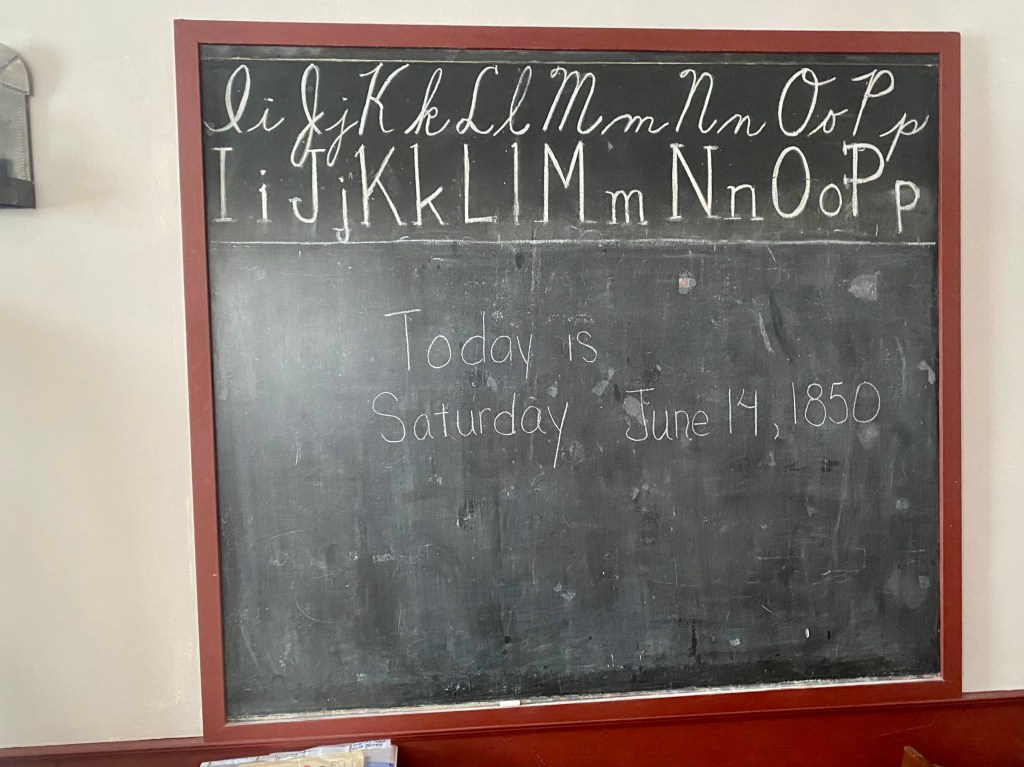 Ii Jj Kk Ll Mm Nn Oo Pp
Ii Jj Kk Ll Mm Nn Oo Pp
Today is
Saturday June 14, 1850